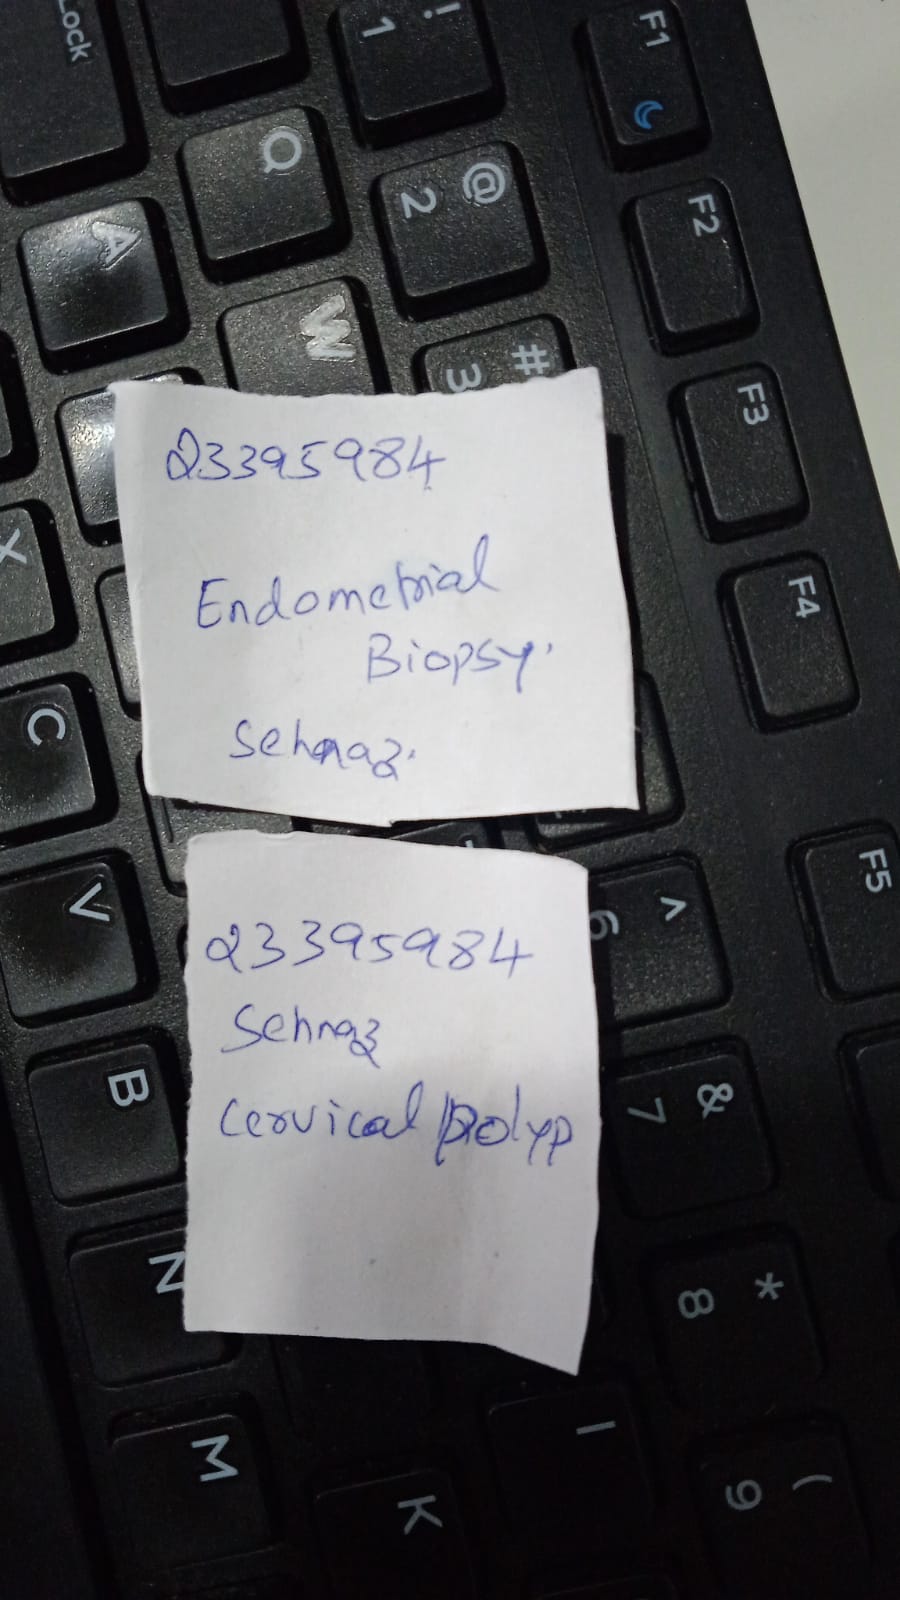 23395984
Endometrial
Biopsy.
Sehnaz.
23395984
Sehnaz
Cervical polyp
Lock
! 1
Q
@ 2
A
W
# 3
X
C
V
B
N
M
K
I
^ 6
& 7
* 8
( 9
F1
F2
F3
F4
F5